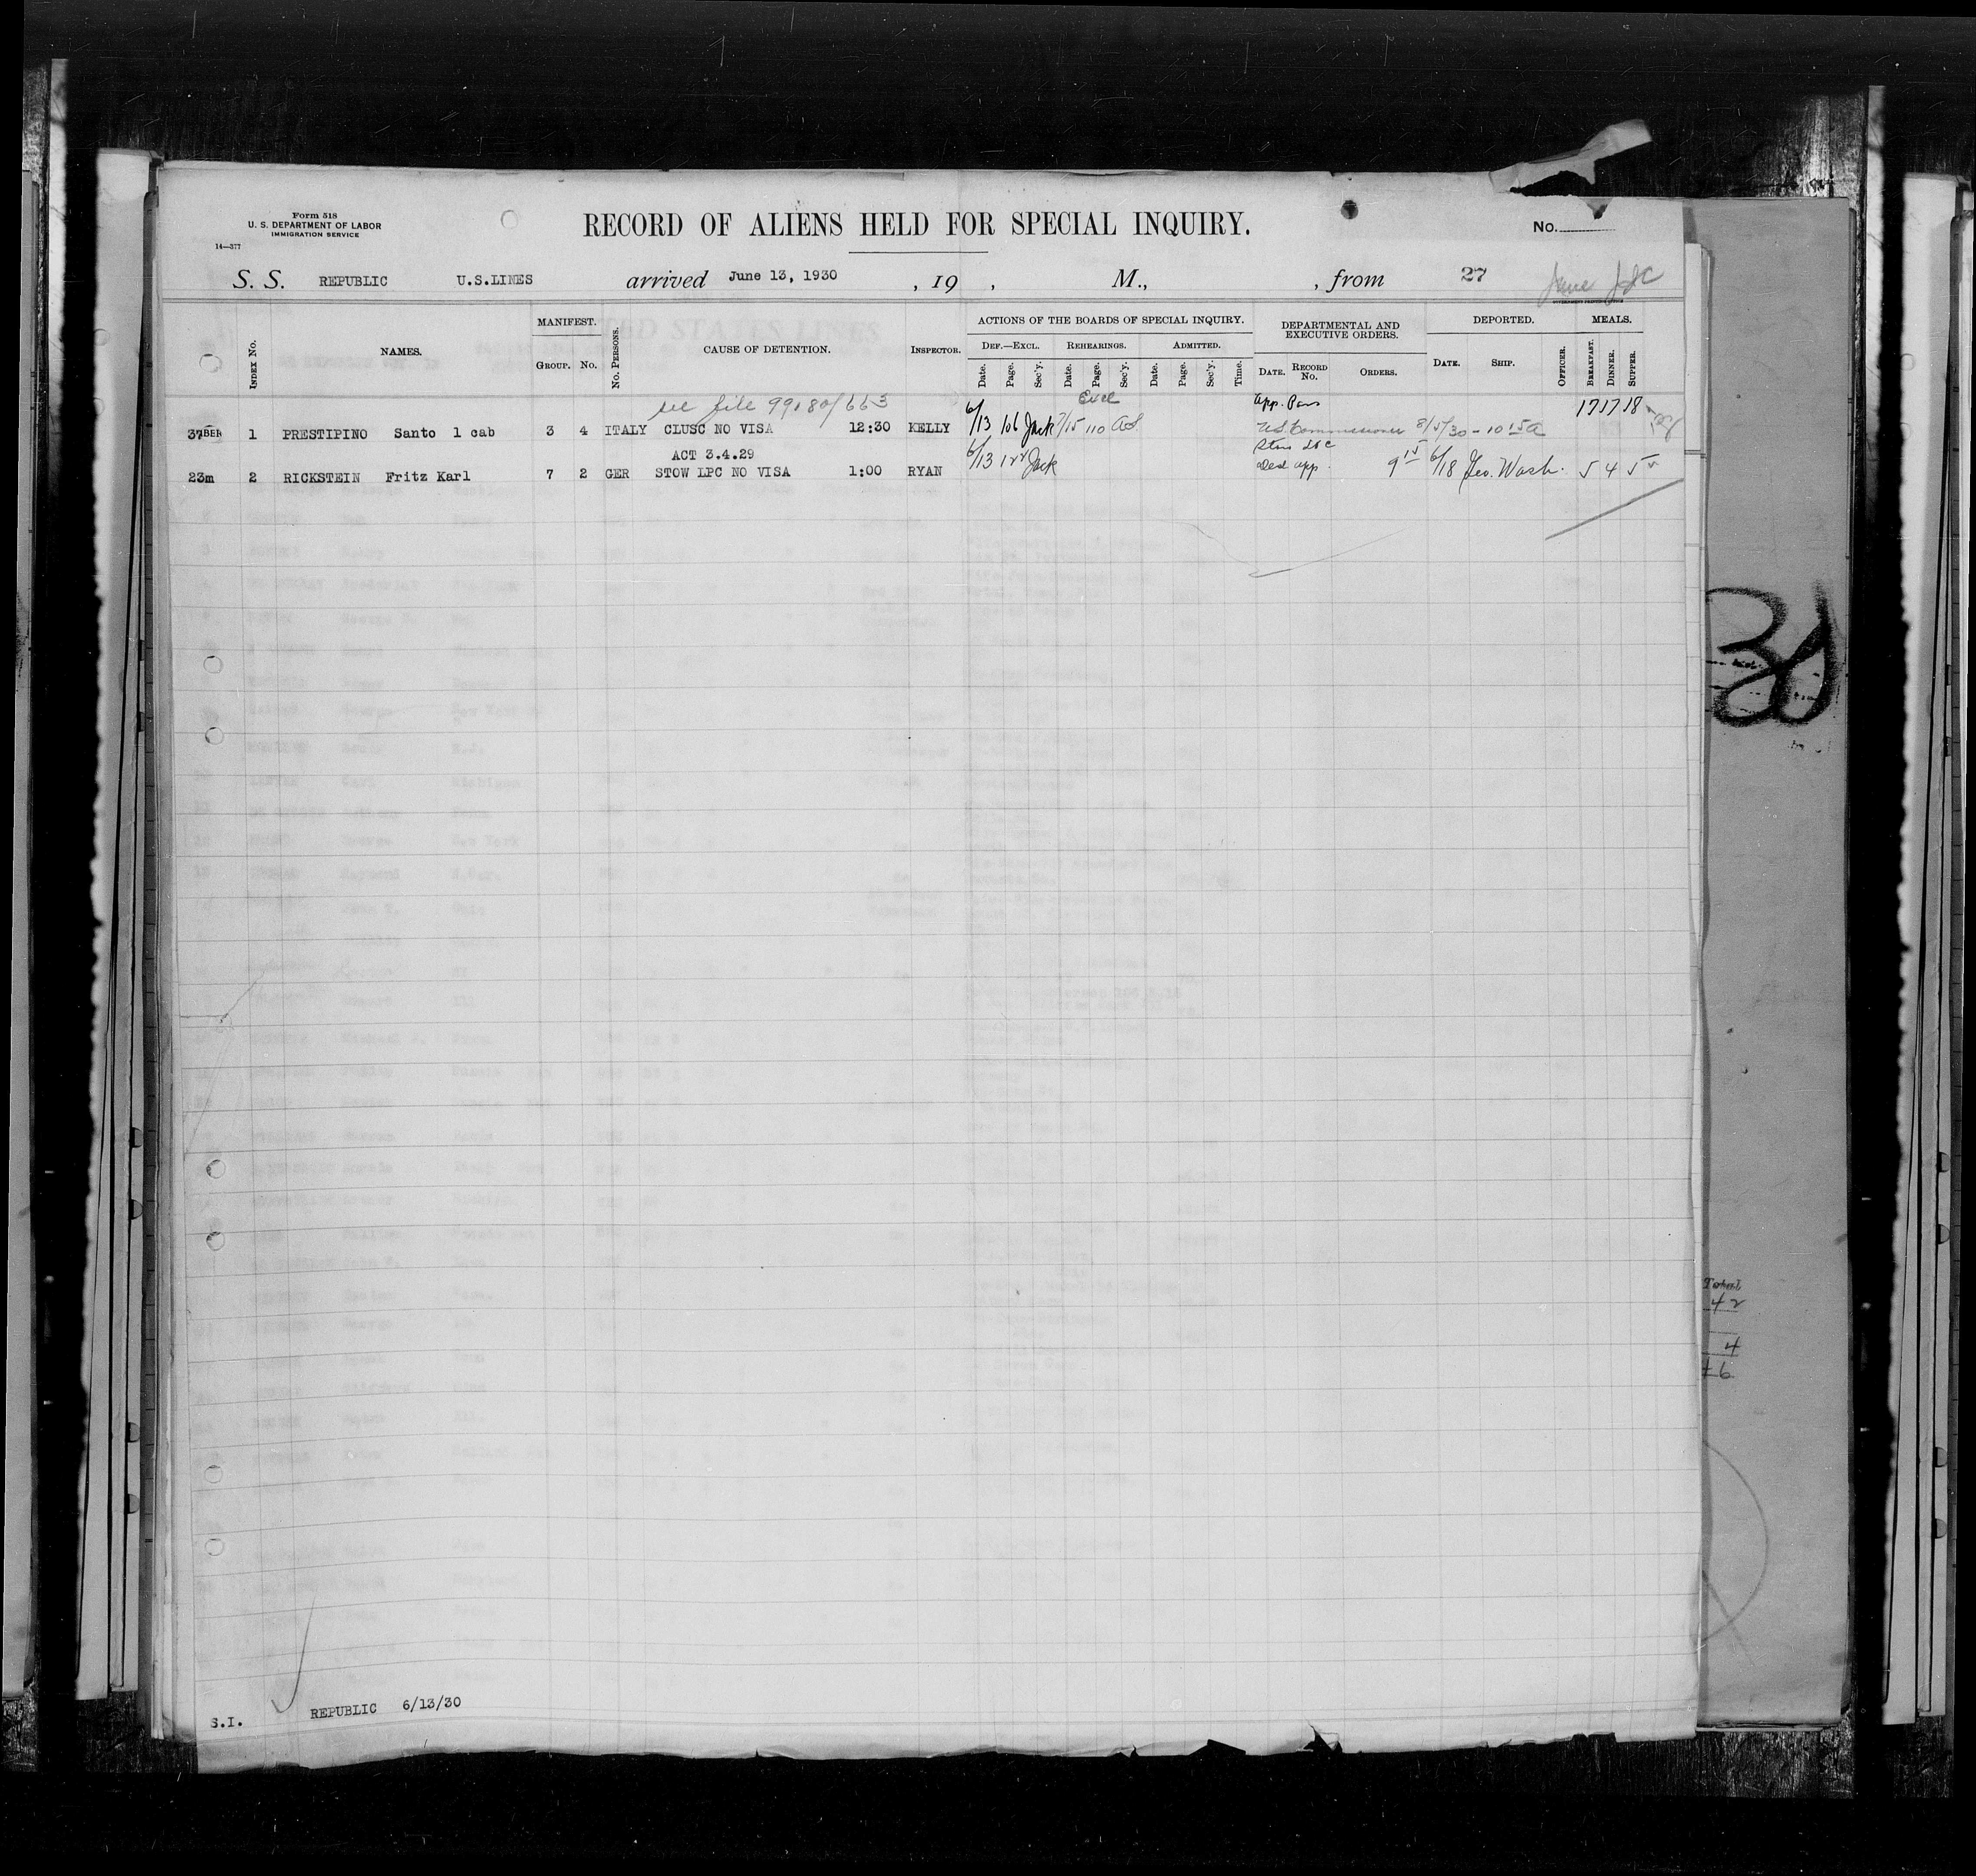 Form 518
U. S. DEPARTMENT OF LABOR
IMMIGRATION SERVICE
14—377
RECORD OF ALIENS HELD FOR SPECIAL INQUIRY.
No.
S. S. REPUBLIC U.S.LINES arrived June 13, 1930 , 19 , M., , from 27 June
Index No. NAMES. MANIFEST. Group. No. No. Persons. CAUSE OF DETENTION. Inspector.
ACTIONS OF THE BOARDS OF SPECIAL INQUIRY. Def.—Excl. Date. Page. Sec'y. Rehearings. Date. Page. Sec'y. Admitted. Date. Page. Sec'y. Time.
DEPARTMENTAL AND EXECUTIVE ORDERS. Date. Record No. Orders.
DEPORTED. Date. Ship. Officer. MEALS. Breakfast. Dinner. Supper.
see file 99180/663 Excl App. 
37 1 PRESTIPINO Santo 1 cab 3 4 ITALY CLUSC NO VISA 12:30 KELLY 6/13 106 Jack 7/15 110 US. Commissioner 8/5/30 - 10 15 a 17 17 18
ACT 3.4.29
23m 2 RICKSTEIN Fritz Karl 7 2 GER STOW LPC NO VISA 1:00 RYAN 6/13 122 Jack app. 9 15 6/18 Geo. Wash. 5 4 5
Total
42
4
46
S.I. REPUBLIC 6/13/30